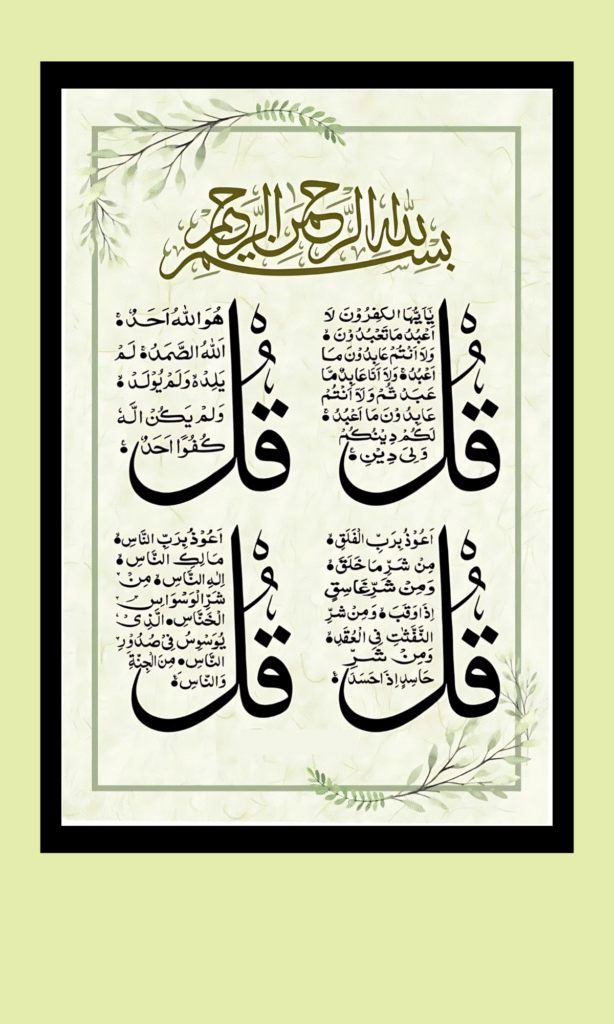 بسم الله الرحمن الرحيم
قُل
يٰۤاَيُّهَا الْكٰفِرُوْنَ لَا
اَعْبُدُ مَا تَعْبُدُوْنَ
وَلَا اَنْتُمْ عَابِدُوْنَ مَا
اَعْبُدُ وَلَا اَنَا عَابِدٌ مَّا
عَبَدْ تُّمْ وَلَا اَنْتُمْ
عَابِدُوْنَ مَا اَعْبُدُ
لَكُمْ دِيْنُكُمْ
وَلِىَ دِيْنِ
قُل
هُوَ اللهُ اَحَدٌ
اَللهُ الصَّمَدُ لَمْ
يَلِدْ وَلَمْ يُوْلَدْ
وَلَمْ يَكُنْ لَّهٗ
كُفُوًا اَحَدٌ
قُل
اَعُوْذُ بِرَبِّ الْفَلَقِ
مِنْ شَرِّ مَا خَلَقَ
وَمِنْ شَرِّ غَاسِقٍ
اِذَا وَقَبَ وَمِنْ شَرِّ
النَّفّٰثٰتِ فِى الْعُقَدِ
وَمِنْ شَرِّ
حَاسِدٍ اِذَا حَسَدَ
قُل
اَعُوْذُ بِرَبِّ النَّاسِ
مَالِكِ النَّاسِ
اِلٰهِ النَّاسِ مِنْ
شَرِّ الْوَسْوَاسِ
الْخَنَّاسِ الَّذِىْ
يُوَسْوِسُ فِىْ صُدُوْرِ
النَّاسِ مِنَ الْجِنَّةِ
وَالنَّاسِ